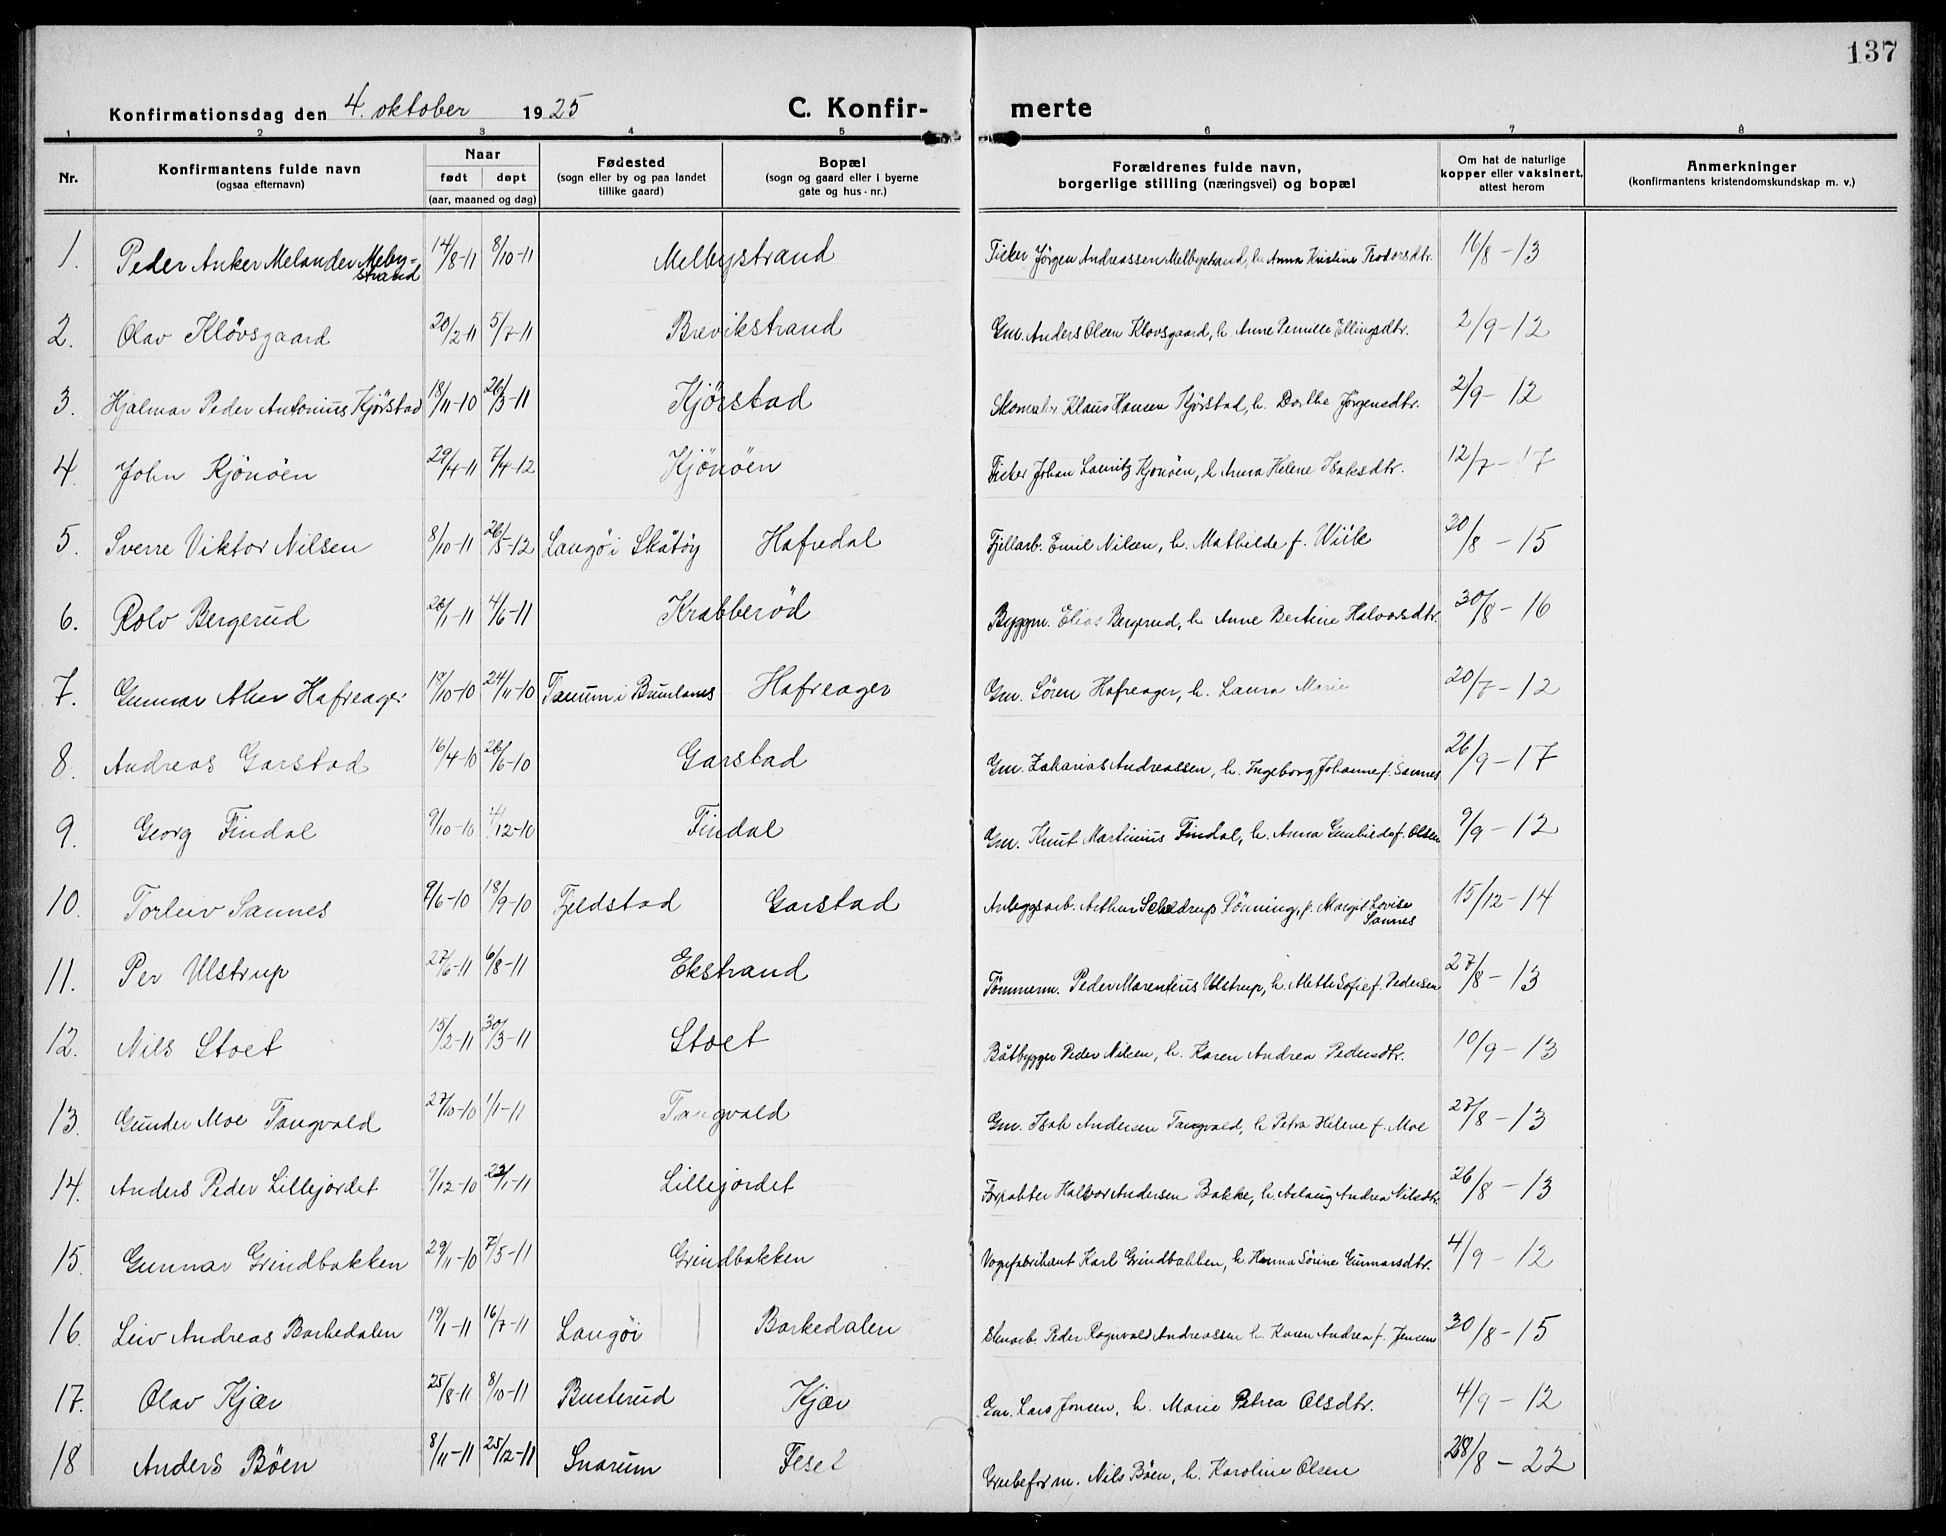 137
Konfirmationsdag den 4. oktober 1925 C. Konfir- merte
1 2 3 4 5 6 7 8
Nr. Konfirmantens fulde navn (ogsaa efternavn) Naar født døpt (aar, maaned og dag) Fødested (sogn eller by og paa landet tillike gaard) Bopæl (sogn og gaard eller i byerne gate og hus-nr.) Forældrenes fulde navn, borgerlige stilling (næringsvei) og bopæl Om hat de naturlige kopper eller vaksinert, attest herom Anmerkninger (konfirmantens kristendomskundskap m. v.)
1. Peder Anker Melander Melby-strand 14/8-11 8/10-11 Melbystrand Fisker Jørgen Andreassen Melbystrand, h. Anna Kristine Teodorsdtr. 16/8-13
2. Olav Kløvsgaard 20/2-11 5/7-11 Brevikstrand Gm. Anders Olsen Klovsgaard, h. Anne Pernille Ellingsdtr. 2/9-12
3. Hjalmar Peder Antonius Kjørstad 18/11-10 26/3-11 Kjørstad Skomaker Klaus Hansen Kjørstad, h. Dorthe Jørgensdtr. 2/9-12
4. John Kjönöen 29/4-11 7/4-12 Kjönöen Fisker Johan Lauritz Kjönöen, h. Anna Helene Isaksdtr. 12/7-17
5. Sverre Viktor Nilsen 8/10-11 26/5-12 Langøi Skåtøy Hafredal Fjellarb. Emil Nilsen, h. Mathilde f. Wiik 30/8-15
6. Rolv Bergerud 26/1-11 4/6-11 Krabberød Byggm. Elias Bergerud, h. Anne Bertine Halvorsdtr. 30/8-16
7. Gunnar Aker Hafreager 19/10-10 24/11-10 Tanum i Brunlanes Hafreager Gm. Søren Hafreager, h. Laura Marie 20/7-12
8. Andreas Garstad 16/4-10 26/6-10 Garstad Gm. Zakarias Andreassen, h. Ingeborg Johanne f. Sannes 26/9-17
9. Georg Findal 9/10-10 4/12-10 Findal Gm. Knut Martinius Findal, h. Anna Gunhilde f. Olsen 9/9-12
10. Torleiv Sannes 9/6-10 18/9-10 Fjeldstad Garstad Anleggsarb. Arthur Scheldrup Tönning, f. Margit Lovise Sannes 15/12-14
11. Per Ulstrup 27/6-11 6/8-11 Ekstrand Tömmerm. Peder Marentius Ulstrup, h. Mette Sofie f. Pedersen 27/8-13
12. Nils Stoet 15/2-11 30/3-11 Stoet Båtbygger Peder Nilsen, h. Karen Andrea Pedersdtr. 10/9-13
13. Gunder Moe Tangvald 27/10-10 1/1-11 Tangvald Gm. Isak Andersen Tangvald, h. Petra Helene f. Moe 27/8-13
14. Anders Peder Lillejordet 9/12-10 22/1-11 Lillejordet Forpakter Halvor Andersen Bakke, h. Aslaug Andrea Nilsdtr. 26/8-13
15. Gunnar Grindbakken 29/11-10 7/5-11 Grindbakken Vognfabrikant Karl Grindbakken, h. Hanna Sörine Gunnarsdtr. 4/9-12
16. Leiv Andreas Barkedalen 19/1-11 16/7-11 Langöi Barkedalen Stenarb. Peder Ragnvald Andreassen h. Karen Andrea f. Jensen 30/8-15
17. Olav Kjær 25/8-11 8/10-11 Busterud Kjær Gm. Lars Jonsen, h. Marie Petrea Olsdtr. 4/9-12
18 Anders Böen 8/11-11 25/12-11 Snarum Feset Grubeform. Nils Böen, h. Karoline Olsen 28/8-22